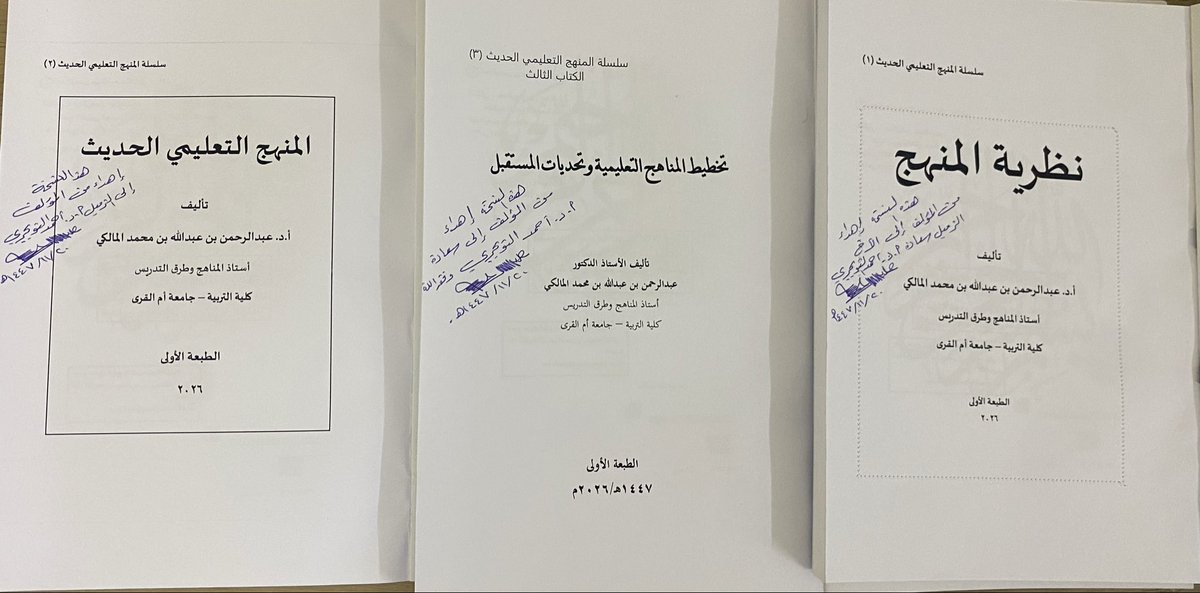 سلسلة المنهج التعليمي الحديث (١)
نظرية المنهج
هذه النسخة إهداء
من المؤلف إلى الأخ
الزميل سعادة أ.د. أحمد التويجري
١٤٤٧/١١/٢٠
تأليف
أ.د. عبدالرحمن بن عبدالله بن محمد المالكي
أستاذ المناهج وطرق التدريس
كلية التربية – جامعة أم القرى
الطبعة الأولى
٢٠٢٦
سلسلة المنهج التعليمي الحديث (٣)
الكتاب الثالث
تخطيط المناهج التعليمية وتحديات المستقبل
هذه النسخة إهداء
من المؤلف إلى سعادة
أ.د. أحمد التويجري وفقه الله
١٤٤٧/١١/٢٠هـ
تأليف الأستاذ الدكتور
عبدالرحمن بن عبدالله بن محمد المالكي
أستاذ المناهج وطرق التدريس
كلية التربية – جامعة أم القرى
الطبعة الأولى
١٤٤٧هـ/٢٠٢٦م
سلسلة المنهج التعليمي الحديث (٢)
المنهج التعليمي الحديث
هذه النسخة
إهداء من المؤلف
إلى الزميل أ.د. أحمد التويجري
١٤٤٧/١١/٢٠هـ
تأليف
أ.د. عبدالرحمن بن عبدالله بن محمد المالكي
أستاذ المناهج وطرق التدريس
كلية التربية – جامعة أم القرى
الطبعة الأولى
٢٠٢٦